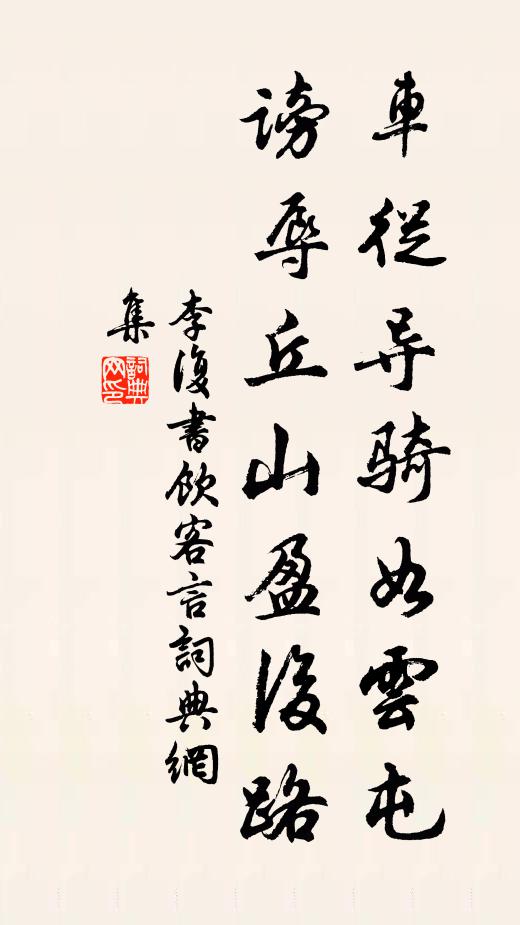 車從导騎如雲屯
謗辱丘山盈後路
李復書飲客言詞典網
集
詞典
网印